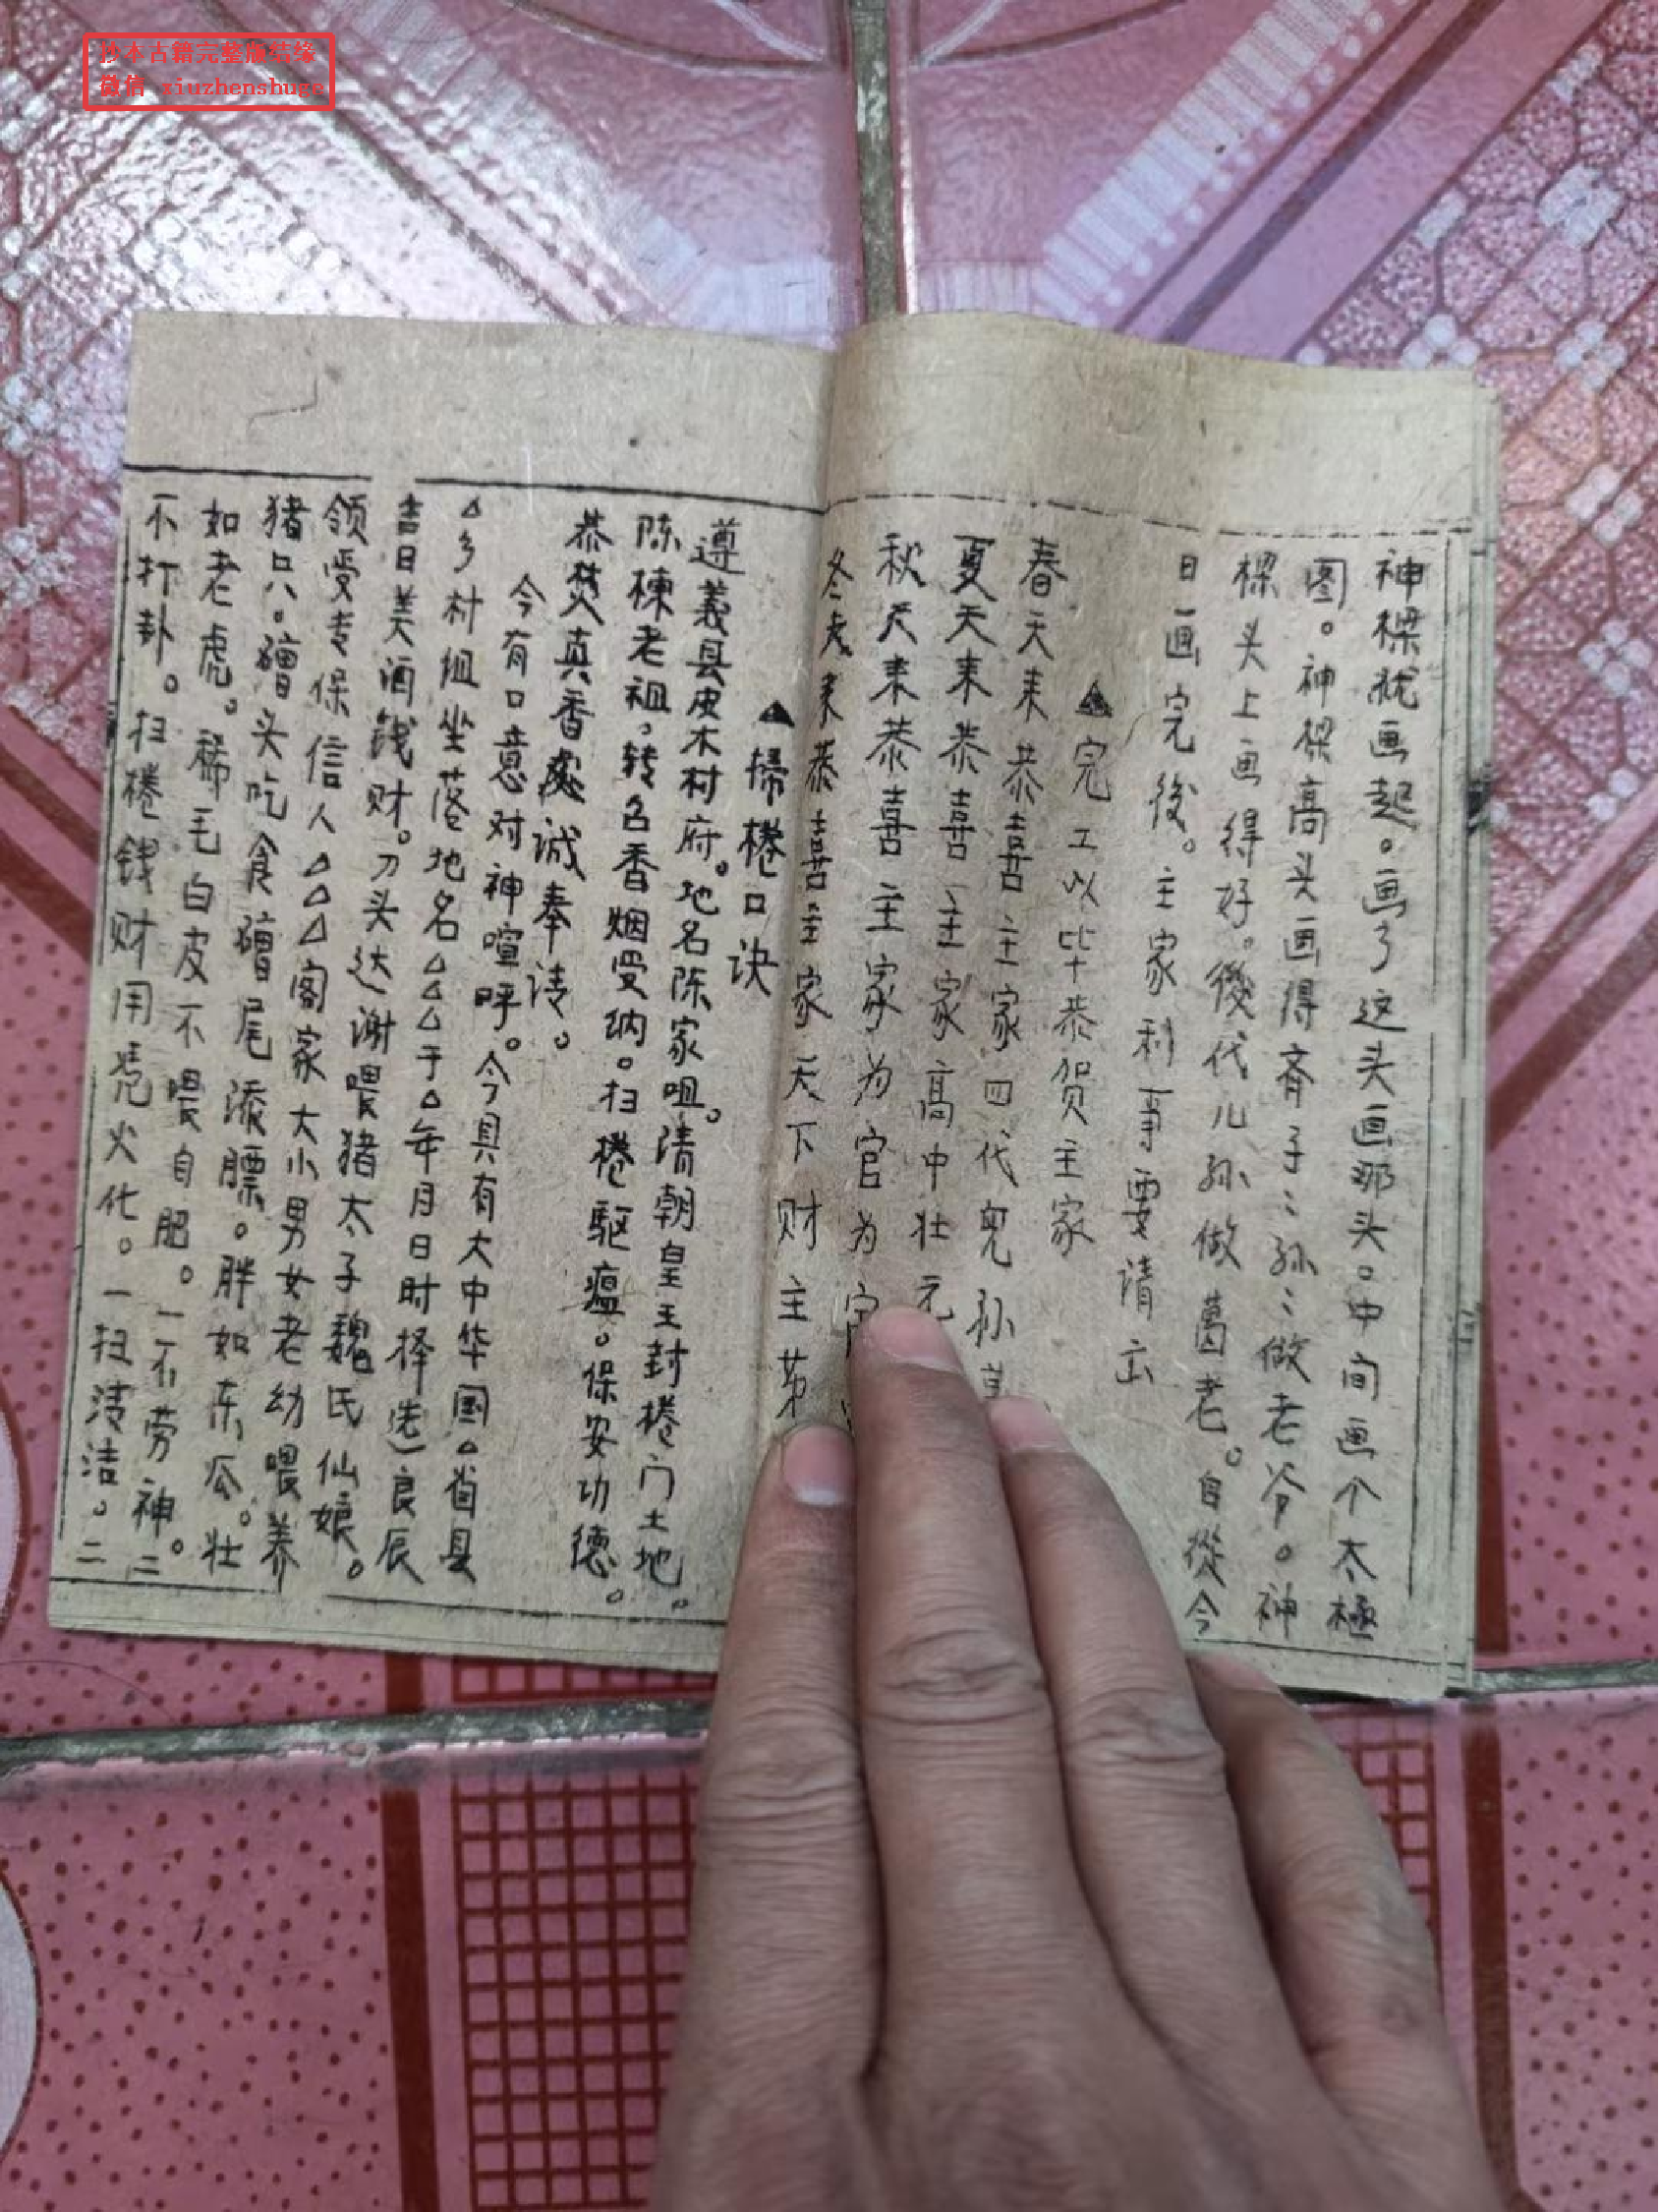 抄本古籍完整版结缘
微信 xiuzhenshuge
神樑犹画起。画了这头画那头。中间画个太極
图。神樑高头画得斉子〻孙〻做老爷。神
樑头上画得好。後代儿孙做葛老。自從今
日画完後。主家利事要请出
▲完工以毕恭贺主家
春天来恭喜主家四代兒孙
夏天来恭喜主家高中壮元
秋天来恭喜主家为官为
冬天来恭喜主家天下财主第
▲掃棬口诀
遵義县皮木村府。地名陈家咀。清朝皇王封棬门土地。
陈楝老祖，转名香烟受纳。扫棬驱瘟。保安功德。
恭焚真香処诚奉请。
今有口意对神喧呼。今具有大中华国△省县
△乡村组坐落地名△△△于△年月日时择选良辰
吉日美酒钱财。刀头达谢喂猪太子魏氏仙娘。
领受专保信人△△△阖家大小男女老幼喂养
猪只。磳头吃食磳尾添膘。胖如东瓜。壮
如老虎。稀毛白皮一不喂自肥。一不劳神。二
不打卦。扫棬钱财用凭火化。一扫清洁。二